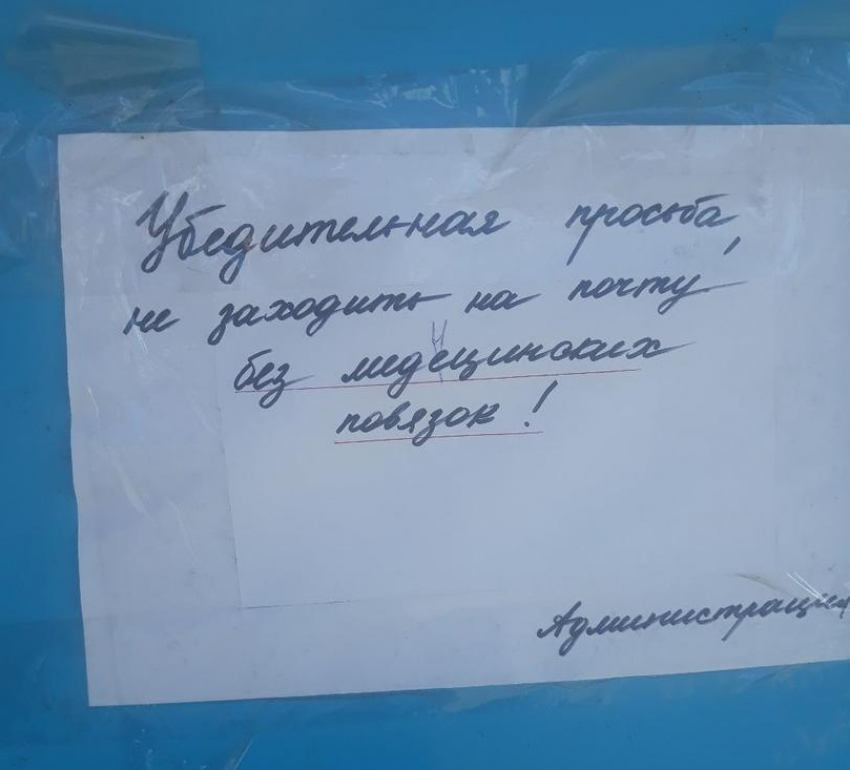 Убедительная просьба,
не заходить на почту
без медецинских
повязок!
Администрация